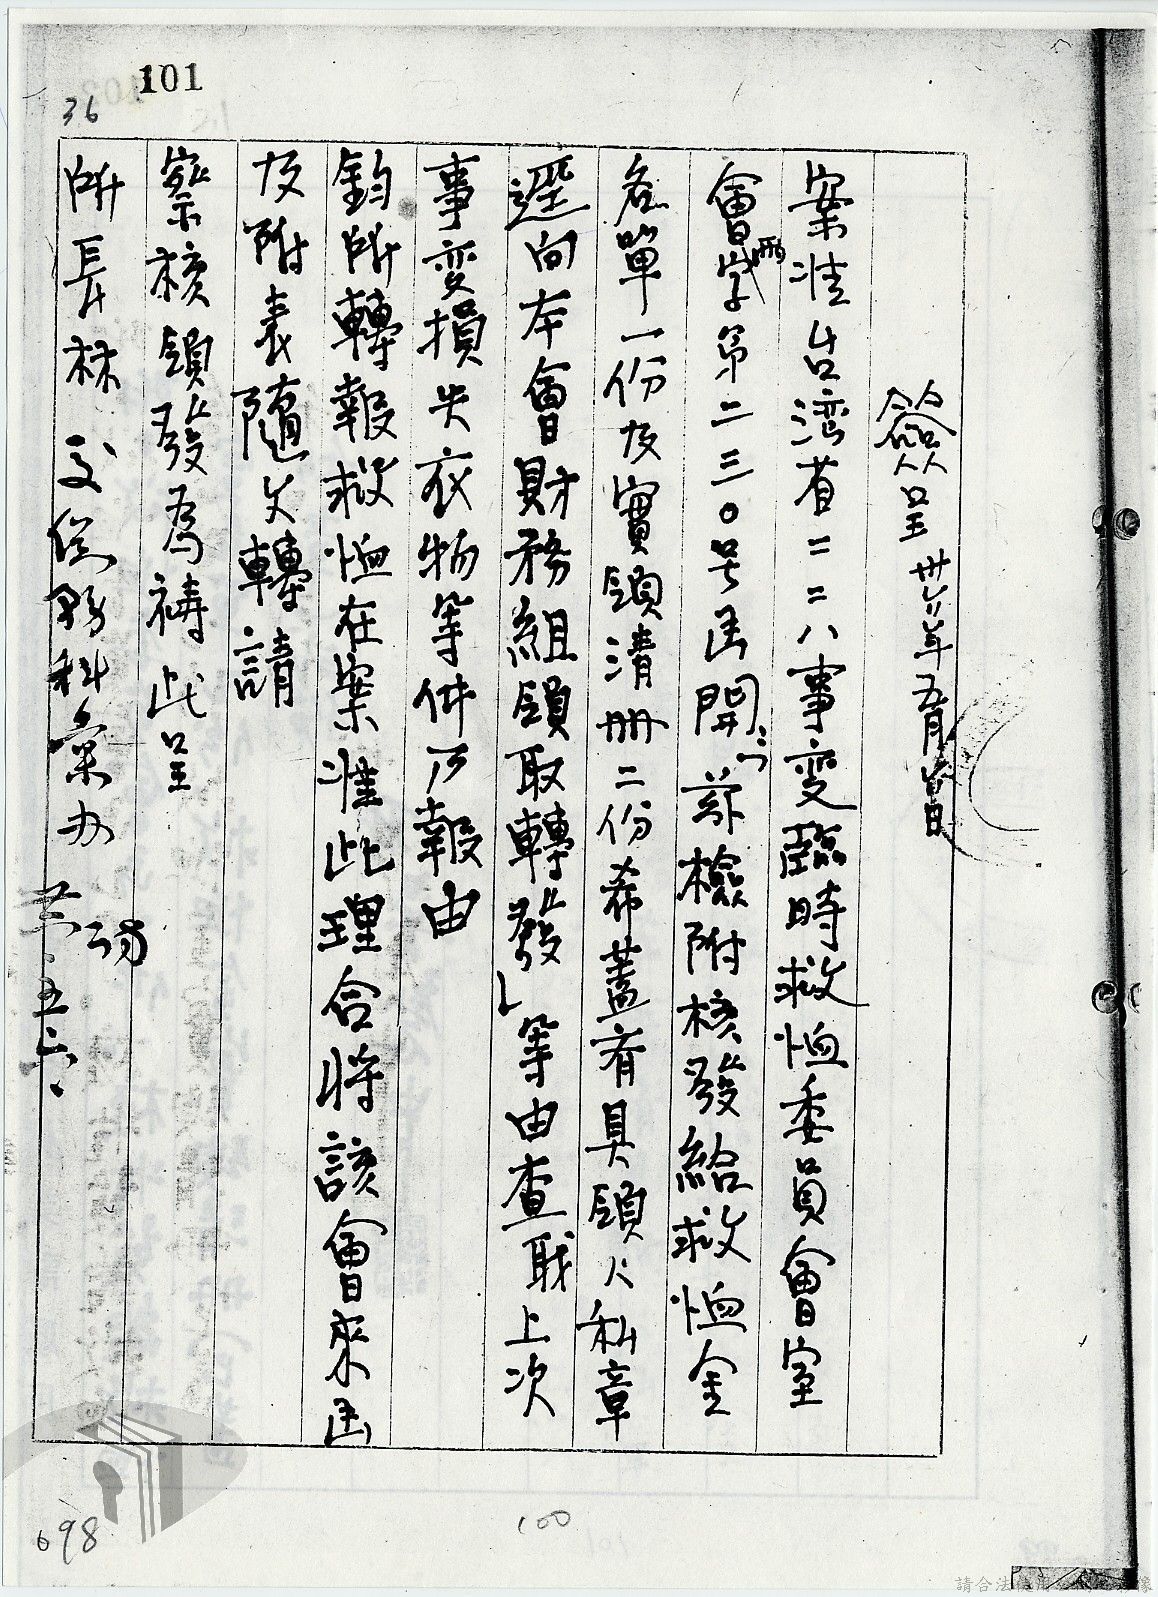 101
36
簽呈 卅六年五月 日
案准台湾省二二八事变臨時救恤委員會室
會丙字第二三〇号函開:「茲檢附核發給救恤金
名單一份及實領清册二份希蓋齊具領人私章
逕向本會財務組領取轉發」等由查職上次
事变損失衣物等件乃報由
鈞所轉報救恤在案准此理合將該會來函
及附表隨文轉請
察核領發為禱此呈
所長林
交總務科彙办
五、六、
698
100